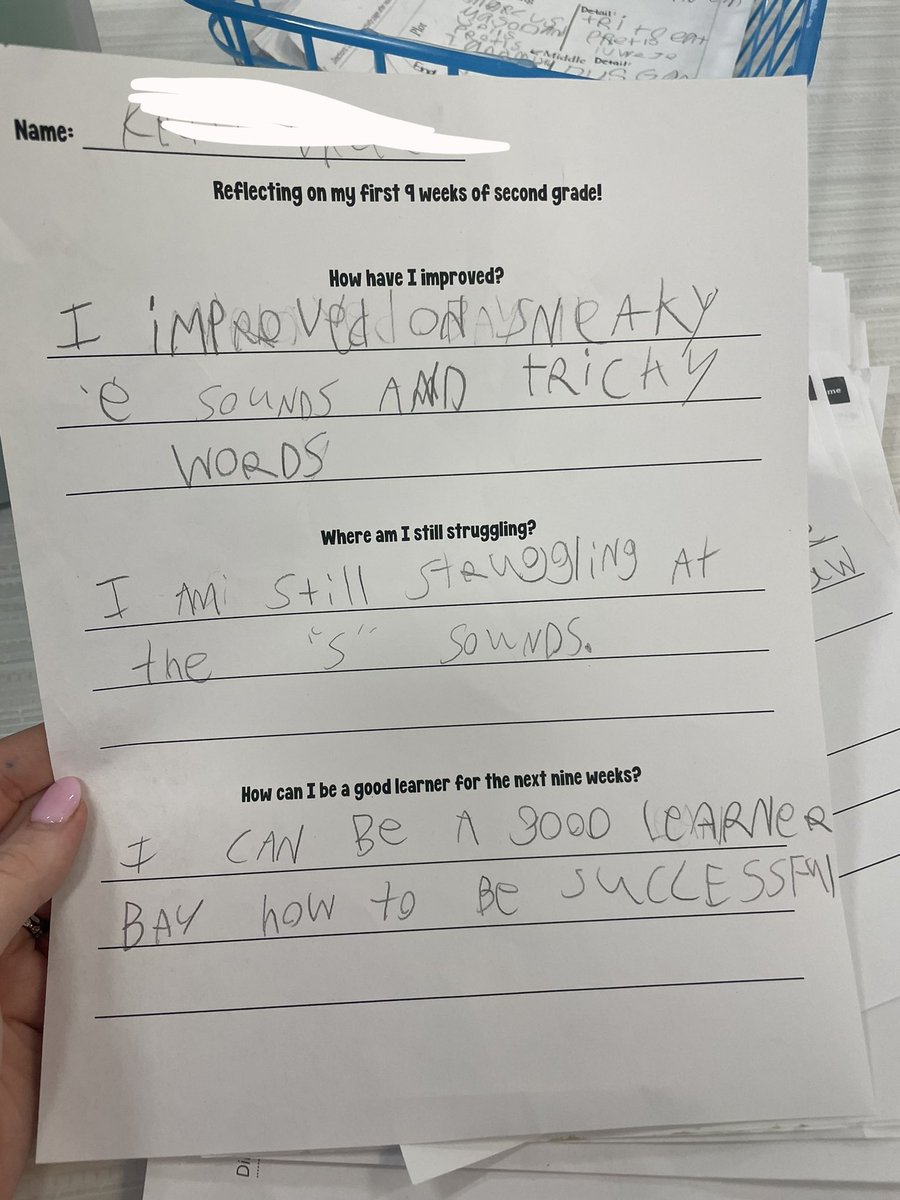 Name:
Reflecting on my first 9 weeks of second grade!
How have I improved?
I iMPROVed ON SNeAKY
'e SOUNDS AND tRiCKY
WORDS
Where am I still struggling?
I AMi Still StRuggling At
the "S" SOUNDS.
How can I be a good learner for the next nine weeks?
I CAN Be A gOOD LeARNeR
BAY hOW to Be SUCCESSFUl
me
Plot
End
Detail:
Middle Detail: